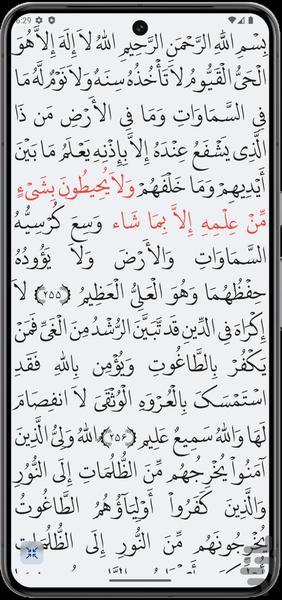 6:29
بِسْمِ اللهِ الرَّحْمَنِ الرَّحِيمِ اللهُ لاَ إِلَهَ إِلاَّ هُوَ
الْحَيُّ الْقَيُّومُ لاَ تَأْخُذُهُ سِنَةٌ وَلاَ نَوْمٌ لَّهُ مَا
فِي السَّمَاوَاتِ وَمَا فِي الأَرْضِ مَن ذَا
الَّذِي يَشْفَعُ عِنْدَهُ إِلاَّ بِإِذْنِهِ يَعْلَمُ مَا بَيْنَ
أَيْدِيهِمْ وَمَا خَلْفَهُمْ وَلاَ يُحِيطُونَ بِشَيْءٍ
مِّنْ عِلْمِهِ إِلاَّ بِمَا شَاء وَسِعَ كُرْسِيُّهُ
السَّمَاوَاتِ وَالأَرْضَ وَلاَ يَؤُودُهُ
حِفْظُهُمَا وَهُوَ الْعَلِيُّ الْعَظِيمُ ﴿٢٥٥﴾ لاَ
إِكْرَاهَ فِي الدِّينِ قَد تَّبَيَّنَ الرُّشْدُ مِنَ الْغَيِّ فَمَنْ
يَكْفُرْ بِالطَّاغُوتِ وَيُؤْمِن بِاللهِ فَقَدِ
اسْتَمْسَكَ بِالْعُرْوَهِ الْوُثْقَىَ لاَ انفِصَامَ
لَهَا وَاللهُ سَمِيعٌ عَلِيمٌ ﴿٢٥٦﴾ اللهُ وَلِيُّ الَّذِينَ
آمَنُواْ يُخْرِجُهُم مِّنَ الظُّلُمَاتِ إِلَى النُّوُرِ
وَالَّذِينَ كَفَرُواْ أَوْلِيَآؤُهُمُ الطَّاغُوتُ
يُخْرِجُونَهُم مِّنَ النُّورِ إِلَى الظُّلُمَاتِ